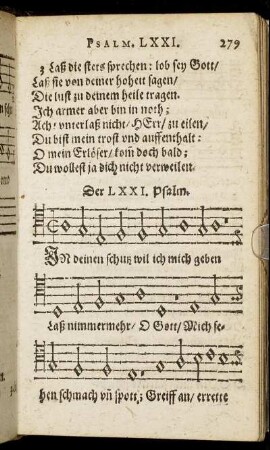 PSALM. LXXI. 279
3 Laß die stets sprechen: lob sey Gott/
Laß sie von deiner hoheit sagen/
Die lust zu deinem heile tragen.
Ich armer aber bin in noth;
Ach! unterlaß nicht/ HErr/ zu eilen/
Du bist mein trost und auffenthalt:
O mein Erlöser/ kom̃ doch bald;
Du wollest ja dich nicht verweilen.
Der LXXI. Psalm.
IN deinen schutz wil ich mich geben
Laß nimmermehr/ O Gott/ Mich se-
hen schmach uñ spott; Greiff an/ errette